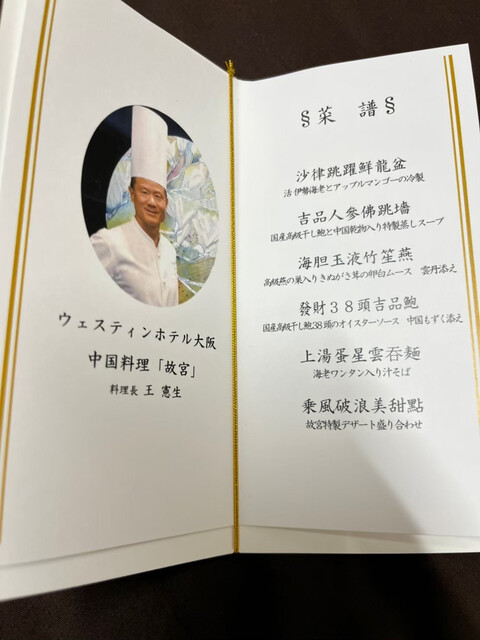 ウェスティンホテル大阪
中国料理「故宮」
料理長 王 憲生
§ 菜 譜 §
沙律跳躍鮮龍盆
活伊勢海老とアップルマンゴーの冷製
吉品人参佛跳墻
国産高級干し鮑と中国乾物入り特製蒸しスープ
海胆玉液竹笙燕
高級燕の巣入りきぬがさ茸の卵白ムース 雲丹添え
發財38頭吉品鮑
国産高級干し鮑38頭のオイスターソース 中国もずく添え
上湯蛋星雲呑麺
海老ワンタン入り汁そば
乘風破浪美甜點
故宮特製デザート盛り合わせ